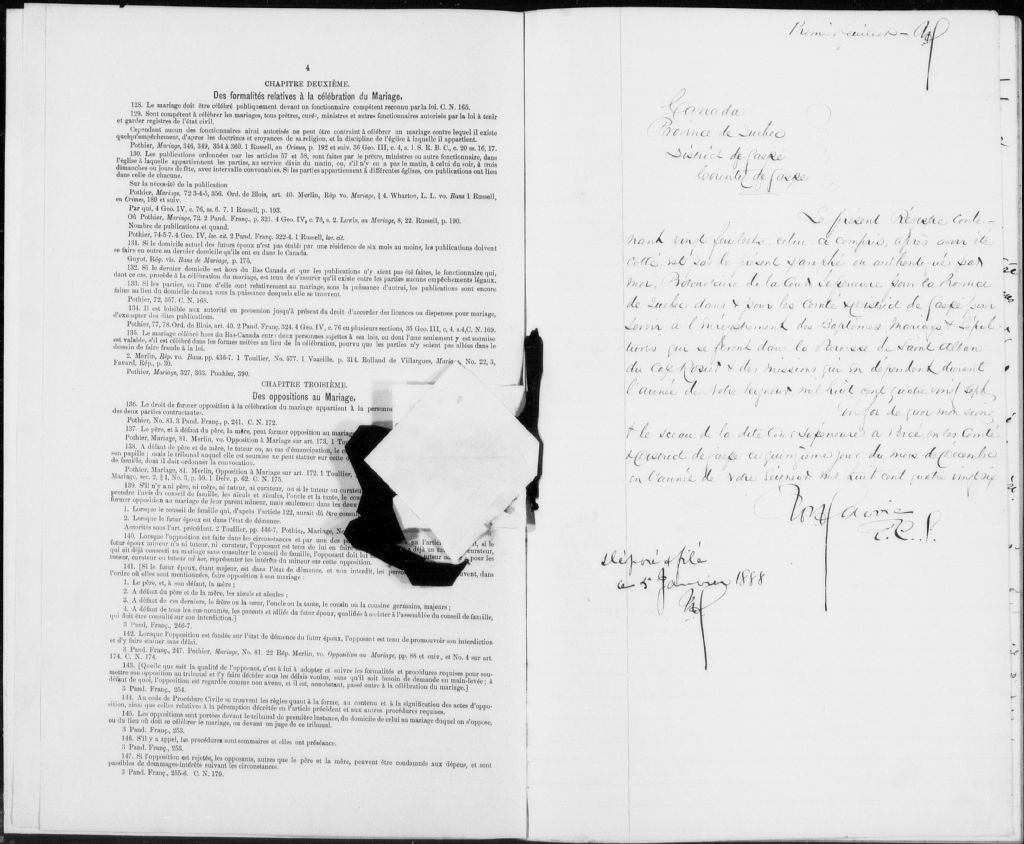 4
CHAPITRE DEUXIÈME.
Des formalités relatives à la célébration du Mariage.
128. Le mariage doit être célébré publiquement devant un fonctionnaire compétent reconnu par la loi. C. N. 165.
129. Sont compétents à célébrer les mariages, tous prêtres, curés, ministres et autres fonctionnaires autorisés par la loi à tenir
et garder registres de l'état civil.
Cependant aucun des fonctionnaires ainsi autorisés ne peut être contraint à célébrer un mariage contre lequel il existe
quelqu'empêchement, d'après les doctrines et croyances de sa religion, et la discipline de l'église à laquelle il appartient.
Pothier, Mariage, 346, 349, 354 à 360. 1 Russell, on Crimes, p. 192 et suiv. 36 Geo. III, c. 4, s. 1. S. R. B. C., c. 20 ss. 16, 17.
130. Les publications ordonnées par les articles 57 et 58, sont faites par le prêtre, ministres ou autre fonctionnaire, dans
l'église à laquelle appartiennent les parties, au service divin du matin, ou, s'il n'y en a pas le matin, à celui du soir, à trois
dimanches ou jours de fête, avec intervalle convenables. Si les parties appartiennent à différentes églises, ces publications ont lieu
dans celle de chacune.
Sur la nécessité de la publication
Pothier, Mariage, 72 3-4-5, 356. Ord. de Blois, art. 40. Merlin, Rép vo. Mariage, § 4. Wharton, L. L. vo. Bans 1 Russell,
on Crimes, 189 et suiv.
Par qui, 4 Geo. IV, c. 76, ss. 6. 7. 1 Russell, p. 193.
Où Pothier, Mariage, 72. 2 Pand. Franç., p. 321. 4 Geo. IV, c. 76, s. 2. Lewis, on Mariage, 8, 22. Russell, p. 190.
Nombre de publications et quand.
Pothier, 74-5-7. 4 Geo. IV, loc. cit. 2 Pand. Franç. 322-4. 1 Russell, loc. cit.
131. Si le domicile actuel des futurs époux n'est pas établi par une résidence de six mois au moins, les publications doivent
se faire en outre au dernier domicile qu'ils ont eu dans le Canada.
Guyot, Rép. vis. Bans de Mariage, p. 175.
132. Si le dernier domicile est hors du Bas Canada et que les publications n'y aient pas été faites, le fonctionnaire qui,
dant ce cas, procède à la célébration du mariage, est tenu de s'assurer qu'il existe entre les parties aucuns empêchements légaux.
133. Si les parties, ou l'une d'elle sont relativement au mariage, sous la puissance d'autrui, les publications sont encore
faites au lieu du domicile de ceux sous la puissance desquels elle se trouvent.
Pothier, 72, 357. C. N. 168.
134. Il est loisible aux autorité en possession jusqu'à présent du droit d'accorder des licences ou dispenses pour mariage,
d'exempter des dites publications.
Pothier, 77, 78. Ord. de Blois, art. 40. 2 Pand. Franç. 324. 4 Geo. IV, c. 76 en plusieurs sections, 35 Geo. III, c, 4. s.4, C. N. 169.
135. Le mariage célébré hors du Bas-Canada entre deux personnes sujettes à ses lois, ou dont l'une seulement y est soumise
est valable, s'il est célébré dans les formes usitées au lieu de la célébration, pourvu que les parties n'y soient pas allées dans le
dessein de faire fraude à la loi.
2. Merlin, Rép. vo. Bans. pp. 436-7. 1 Toullier, No. 577. 1 Vazeille, p. 314. Rolland de Villargues, No. 22, 3,
Favard, Rép., p. 39.
Pothier, Mariage, 327, 363. Pouhier, 390.
CHAPITRE TROISIÈME.
Des oppositions au Mariage.
136. Le droit de former opposition à la célébration du mariage appartient à la personne
des deux parties contractantes.
Pothier, No. 81. 3 Pand. Franç., p. 241. C. N. 172.
137. Le père, et à défaut du père, la mère, peut former opposition au mariage
Pothier, Mariage, 81. Merlin, vo. Opposition à Mariage sur art. 173. 1 Tou
138. A défaut de père et de mère, le tuteur ou, au cas d'émancipation, le
son pupille ; mais le tribunal auquel elle est soumise ne peut statuer sur cette o
de famille, dont il doit ordonner la convocation.
Pothier, Mariage, 81. Merlin, Opposition à Mariage sur art. 172. 1 Toullier,
Mariage, sec. 2, § 1, No. 3, p. 50. 1 Delv. p. 62. C. N. 175.
139. S'il n'y a ni père, ni mère, ni tuteur, ni curateur, ou si le tuteur ou curateur
prendre l'avis du conseil de famille, les aïeuls et aïeules, l'oncle et la tante, le cous
former opposition au mariage de leur parent mineur, mais seulement dans les deux
1. Lorsque le conseil de famille qui, d'après l'article 122, aurait dû être consu
2. Lorsque le futur époux est dans l'état de démence.
Autorités sous l'art. précédent. 2 Toullier, pp. 446-7. Pothier, Mariage, No
140. Lorsque l'opposition est faite dans les circonstances et par une des per
futur époux mineur n'a ni tuteur, ni curateur, l'opposant est tenu de lui en faire
qui ait déjà consenti au mariage sans consulter le conseil de famille, l'opposant doit
tuteur, curateur ou tuteur ad hoc, représenter les intérêts du mineur sur cette opposition.
141. [Si le futur époux, étant majeur, est dans l'état de démence, et non interdit, les person
l'ordre où elles sont mentionnées, faire opposition à son mariage :
1. Le père, et, à son défaut, la mère ;
2. A défaut du père et de la mère, les aïeuls et aïeules ;
3. A défaut de ces derniers, le frère ou la sœur, l'oncle ou la tante, le cousin ou la cousine germains, majeurs ;
4. A défaut de tous les sus-nommés, les parents et alliés du futur époux, qualifiés à assister à l'assemblée du conseil de famille,
qui doit être consulté sur son interdiction.]
3 Pand, Franç., 246-7.
142. Lorsque l'opposition est fondée sur l'état de démence du futur époux, l'opposant est tenu de promouvoir son interdiction
et d'y faire statuer sans délai.
3 Pand. Franç., 247. Pothier, Mariage, No. 81. 22 Rép. Merlin, vo. Opposition au Mariage, pp. 88 et suiv., et No. 4 sur art.
174. C. N. 174.
143. [Quelle que soit la qualité de l'opposant, c'est à lui à adopter et suivre les formalités et procédures requises pour sou-
mettre son opposition au tribunal et l'y faire décider sous les délais voulus, sans qu'il soit besoin de demande en main-levée ; à
défaut de quoi, l'opposition est regardée comme non avenu, et il est, nonobstant, passé outre à la célébration du mariage.]
3 Pand. Franç., 254.
144. Au code de Procédure Civile se trouvent les règles quant à la forme, au contenu et à la signification des actes d'oppo-
sition, ainsi que celles relatives à la péremption décrétée en l'article précédent et aux autres procédures requises.
145. Les oppositions sont portées devant le tribunal de première instance, du domicile de celui au mariage duquel on s'oppose,
ou du lieu où doit se célébrer le mariage, ou devant un juge de ce tribunal.
3 Pand. Franç., 253.
146. S'il y a appel, les procédures sont sommaires et elles ont préséance.
3 Pand. Franç., 253.
147. Si l'opposition est rejetée, les opposants, autres que le père et la mère, peuvent être condamnés aux dépens, et sont
passibles de dommages-intérêts suivant les circonstances.
3 Pand. Franç., 255-6. C. N. 179.
Premier feuillet –
Canada
Province de Quebec
District de Gaspé
Comté de Gaspé
Le présent Régistre conte-
nant vingt feuillets, celui ci compris, après avoir été
cotté, est par le présent paraphé en authenticité par
moi, Protonotaire de la Cour Supérieure pour la Province
de Quebec dans & pour les Comté & District de Gaspé pour
servir à l'enregistrement des Baptemes Mariages & Sépul-
tures qui se feront dans la Paroisse de Saint Alban
du Cap Rosier & des missions qui en dépendent durant
l'année de Notre Seigneur mil huit cent quatre vingt sept
en foi de quoi mon seing
& le sceau de la dite Cour Supérieure à Percé en les Comté
& District de Gaspé ce quinzième jour du mois de Décembre
en l'année de Notre Seigneur mil huit cent quatre vingt six
P.C.S.
Déposé & filé
ce 5 Janvier 1888